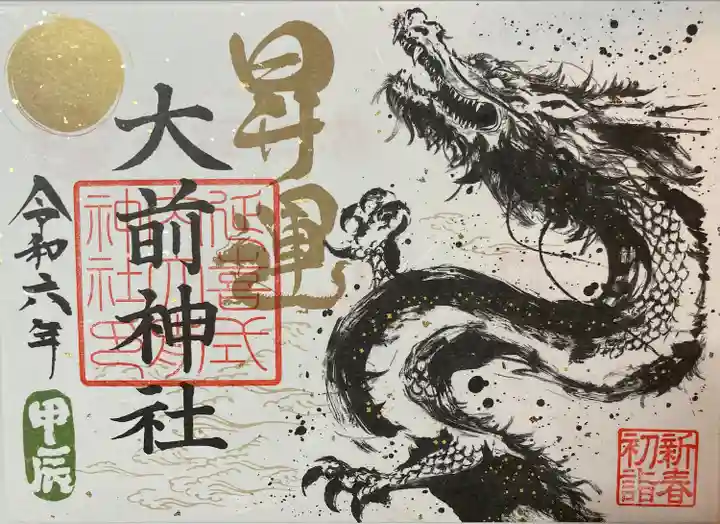 昇運
大前神社
延喜式
大前
神社印
令和六年
甲辰
新春
初詣